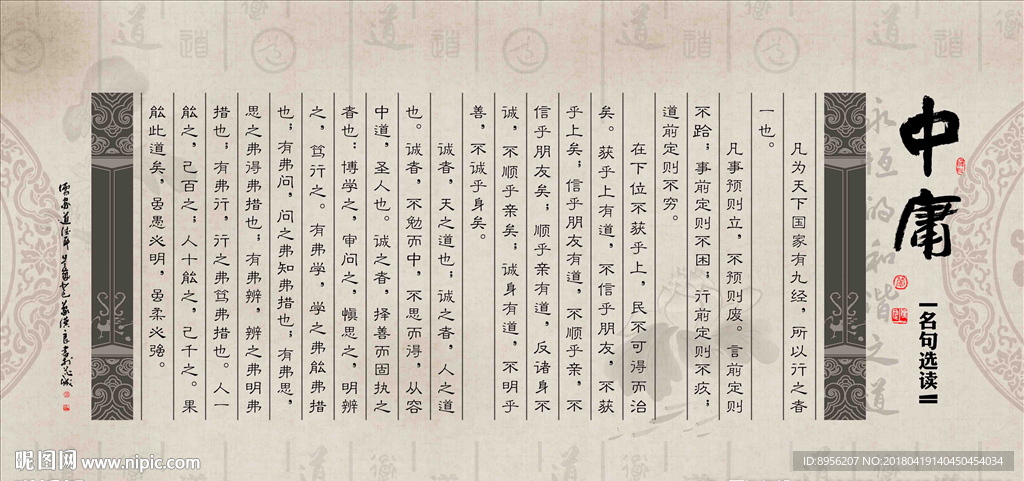 中庸
名句选读
永恒的和谐之道
凡为天下国家有九经，所以行之者
一也。
凡事预则立，不预则废。言前定则
不跲；事前定则不困；行前定则不疚；
道前定则不穷。
在下位不获乎上，民不可得而治
矣。获乎上有道，不信乎朋友，不获
乎上矣；信乎朋友有道，不顺乎亲，不
信乎朋友矣；顺乎亲有道，反诸身不
诚，不顺乎亲矣；诚身有道，不明乎
善，不诚乎身矣。
诚者，天之道也；诚之者，人之道
也。诚者，不勉而中，不思而得，从容
中道，圣人也。诚之者，择善而固执之
者也：博学之，审问之，慎思之，明辨
之，笃行之。有弗学，学之弗能弗措
也；有弗问，问之弗知弗措也；有弗思，
思之弗得弗措也；有弗辨，辨之弗明弗
措也；有弗行，行之弗笃弗措也。人一
能之，己百之；人十能之，己千之。果
能此道矣，虽愚必明，虽柔必强。
昵图网 www.nipic.com
ID:8956207 NO:20180419140450454034